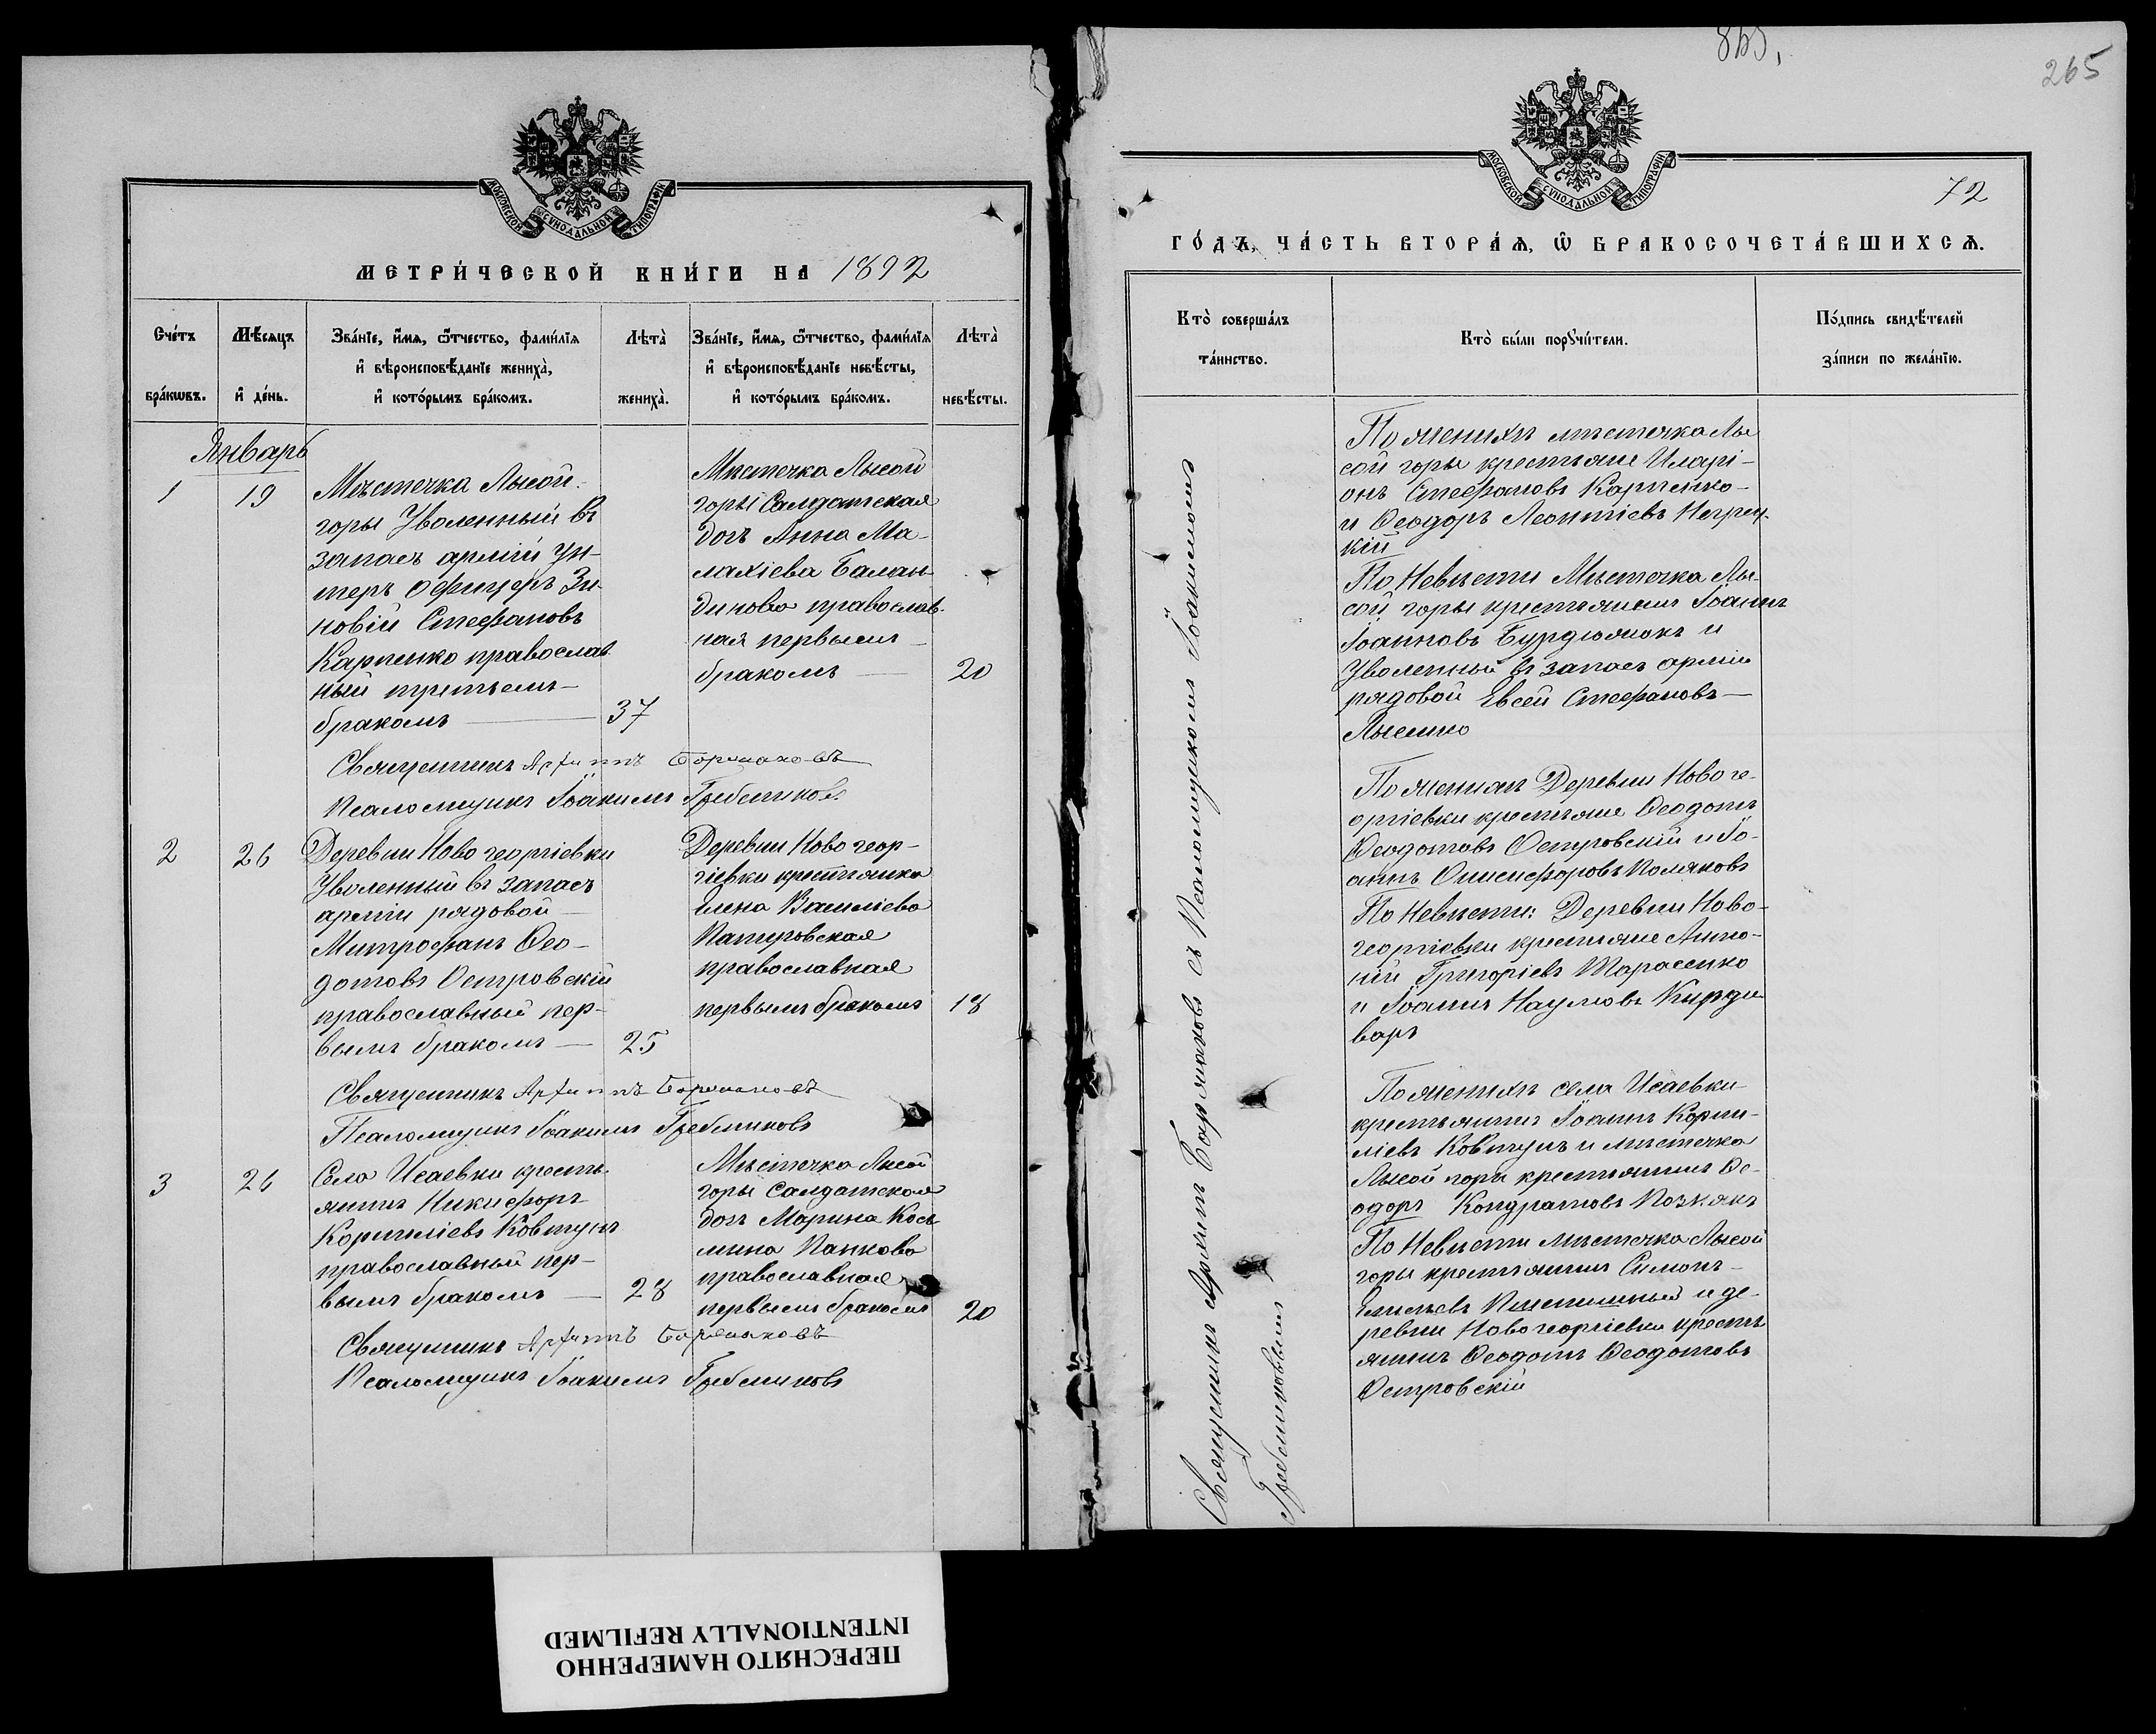 МОСКОВСКОЙ СѴНОДАЛЬНОЙ ТИПОГРАФІИ
МЕТРИ́ЧЕСКОЙ КНИ́ГИ НА 1892
Сче́тъ бра́кѡвъ.
Мѣ́сяцъ и҆ де́нь.
Зва́нїе, и҆́мѧ, ѻ҆́тчество, фами́лїѧ
и҆ вѣроисповѣ́данїе жениха̀,
и҆ кото́рымъ бра́комъ.
Лѣта̀ жениха̀.
Зва́нїе, и҆́мѧ, ѻ҆́тчество, фами́лїѧ
и҆ вѣроисповѣ́данїе невѣ́сты,
и҆ кото́рымъ бра́комъ.
Лѣта̀ невѣ́сты.
Январь
1
19
Мѣстечка Лысой
горы Уволенный въ
запасъ арміи ун-
теръ офицеръ Зи-
новій Стефановъ
Карпенко православ-
ный третьемъ
бракомъ — 37
Мѣстечка Лысой
горы Салдатская
дочь Анна Ма-
лахіева Балан-
динова православ-
ная первымъ
бракомъ — 20
Священникъ Архиппъ Боршаковъ
Псаломщикъ Іоакимъ Гребенниковъ
2
26
Деревни Ново георгіевки
Уволенный въ запасъ
арміи рядовой
Митрофанъ Ѳео-
дотовъ Островскій
православный пер-
вымъ бракомъ — 25
Деревни Ново геор-
гіевки крестьянка
Елена Василіева
православная
первымъ бракомъ 18
Священникъ Архиппъ Боршаковъ
Псаломщикъ Іоакимъ Гребенниковъ
3
26
Села Исаевки кресть-
янинъ Никифоръ
Корниліевъ Ковтунъ
православный пер-
вымъ бракомъ — 28
Мѣстечка Лысой
горы Салдатская
дочь Марина Кось-
мина Панкова
православная
первымъ бракомъ 20
Священникъ Архиппъ Боршаковъ
Псаломщикъ Іоакимъ Гребенниковъ
265
МОСКОВСКОЙ СѴНОДАЛЬНОЙ ТИПОГРАФІИ
72
ГО́ДЪ, ЧА́СТЬ ВТОРА́Ѧ, Ѡ҆ БРАКОСОЧЕТА́ВШИХСѦ.
Кто̀ соверша́лъ
та́инство.
Кто̀ бы́ли порꙋчи́тели.
По́дпись свидѣ́телей
за́писи по жела́нїю.
Священникъ Архипъ Боршаковъ съ Псаломщикомъ Іоакимомъ
Гребенниковымъ
По женихѣ мѣстечка Лы
сой горы крестьяне Иларі-
онъ Стефановъ Карпенко
и Ѳеодоръ Леонтіевъ Негрец-
кій
По Невѣсти Мѣстечка Лы-
сой горы крестьянинъ Іоаннъ
Іоанновъ Бурдюжокъ и
Уволенный въ запасъ арміи
рядовой Евсей Стефановъ
Лысенко
По женихѣ Деревни Ново ге-
оргіевки крестьяне Ѳеодотъ
Ѳеодотовъ Островскій и Іо-
аннъ Онисифоровъ Поляковъ
По Невѣсти: Деревни Ново-
георгіевки крестьяне Анто-
ній Григоріевъ Тарасенко
и Іоаннъ Наумовъ Кирди-
варъ
По женихѣ села Исаевки
крестьянинъ Іоаннъ Корни-
ліевъ Ковтунъ и мѣстечка
Лысой горы крестьянинъ Ѳе-
одоръ Кондратовъ Познякъ
По Невѣсти мѣстечка Лысой
горы крестьянинъ Симонъ
Пшеничный и де-
ревни Ново георгіевки кресть-
янинъ Ѳеодотъ Ѳеодотовъ
Островскій
ПЕРЕСНЯТО НАМЕРЕННО
INTENTIONALLY REFILMED